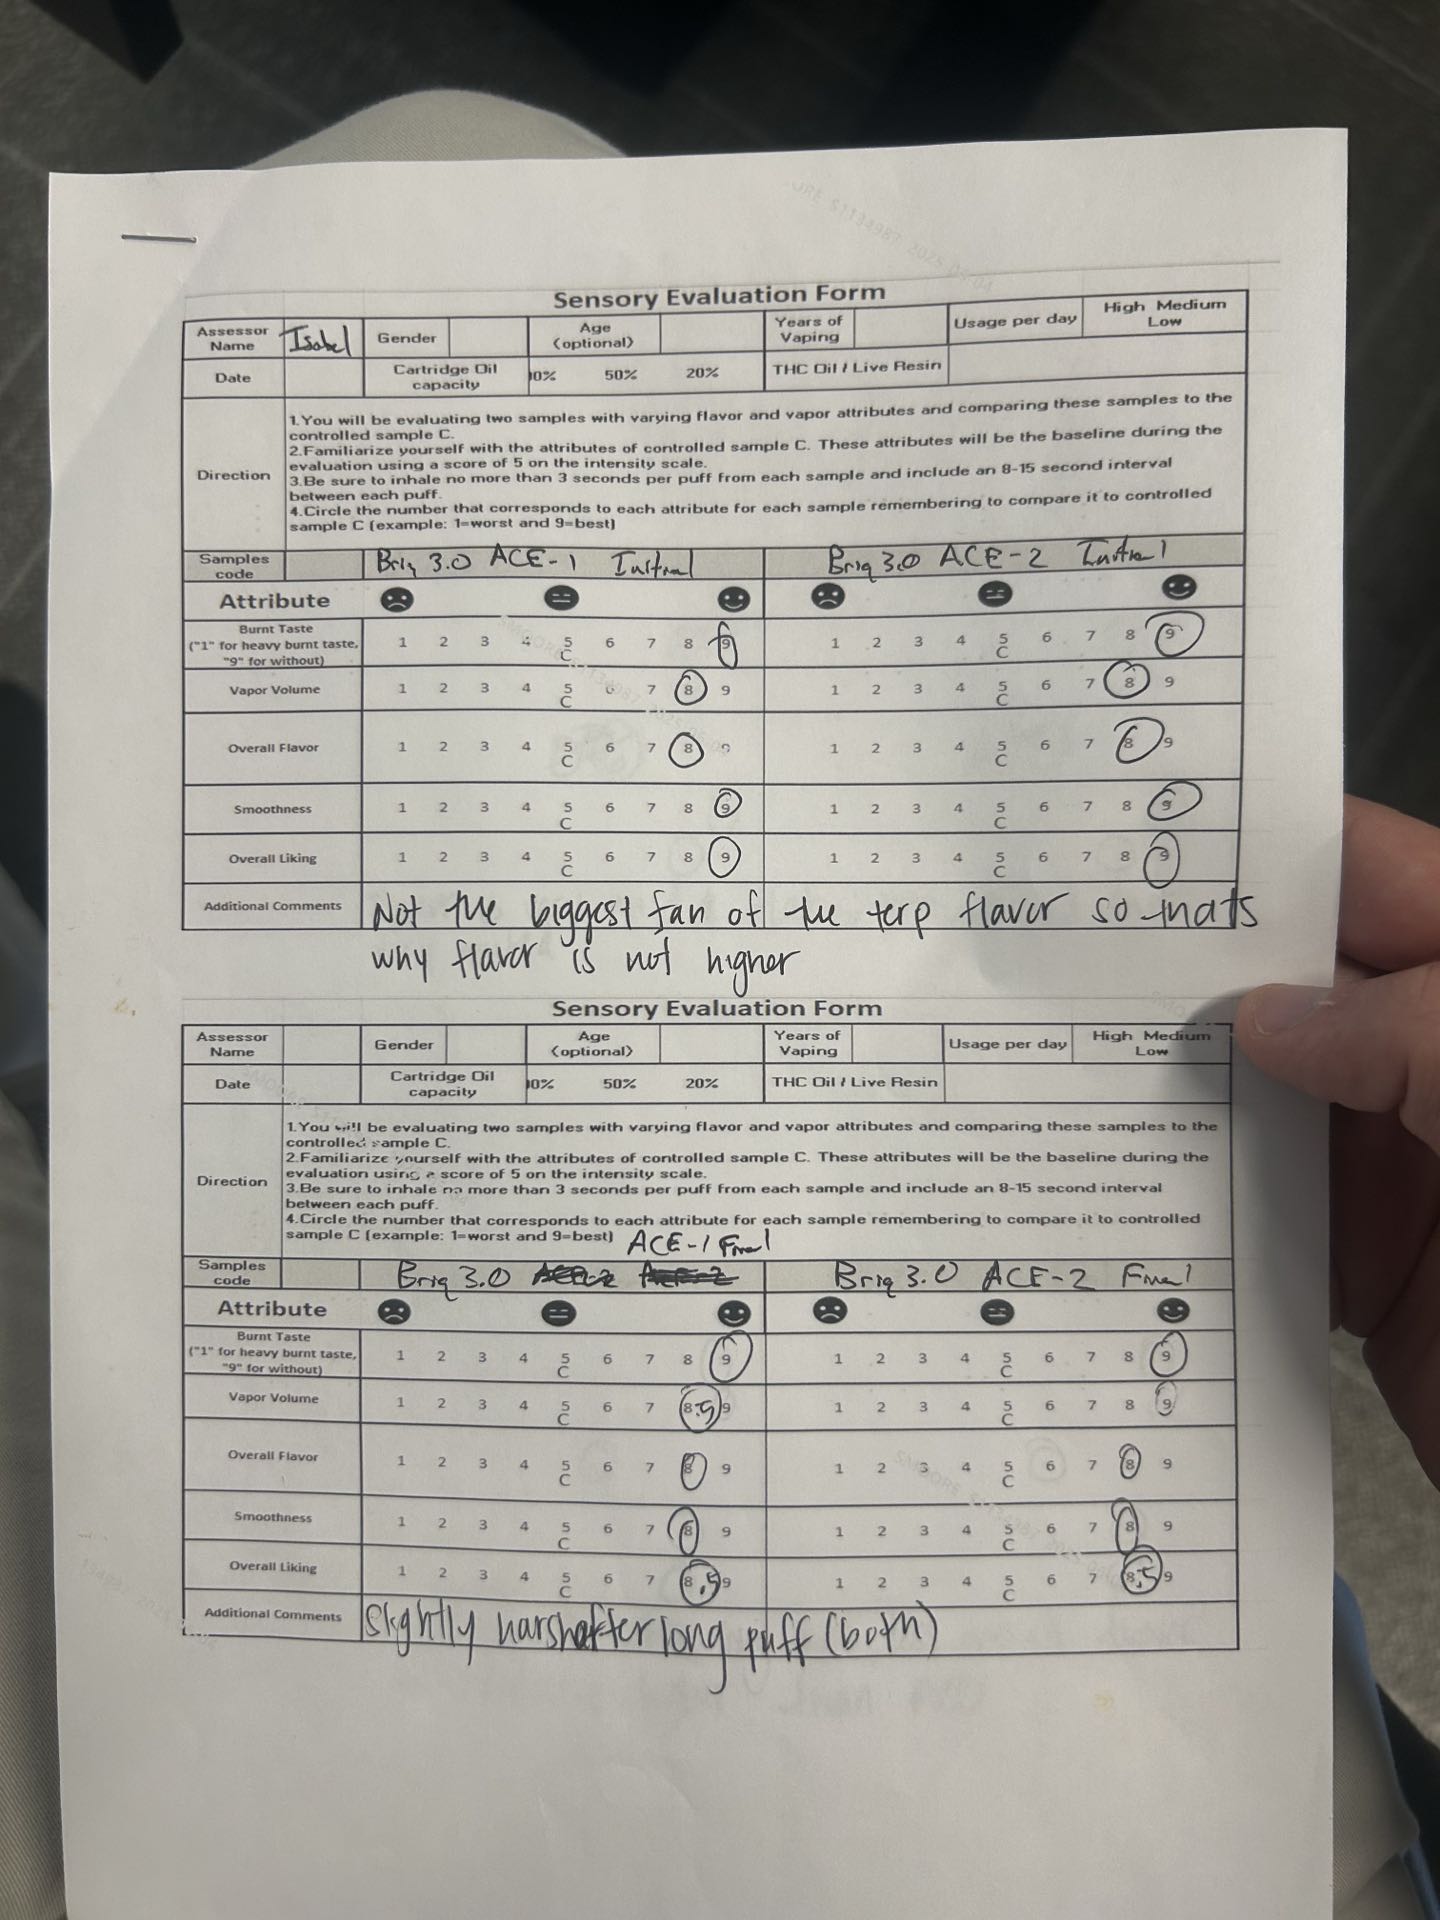 Sensory Evaluation Form
Assessor Name Isabel Gender Age (optional) Years of Vaping Usage per day High Medium Low
Date Cartridge Oil capacity 10% 50% 20% THC Oil / Live Resin
Direction
1.You will be evaluating two samples with varying flavor and vapor attributes and comparing these samples to the
controlled sample C.
2.Familiarize yourself with the attributes of controlled sample C. These attributes will be the baseline during the
evaluation using a score of 5 on the intensity scale.
3.Be sure to inhale no more than 3 seconds per puff from each sample and include an 8-15 second interval
between each puff.
4.Circle the number that corresponds to each attribute for each sample remembering to compare it to controlled
sample C (example: 1=worst and 9=best)
Samples code Briq 3.0 ACE-1 Initial Briq 3.0 ACE-2 Initial
Attribute
Burnt Taste
("1" for heavy burnt taste, 1 2 3 4 5 6 7 8 9 1 2 3 4 5 6 7 8 9
"9" for without) C C
Vapor Volume 1 2 3 4 5 6 7 8 9 1 2 3 4 5 6 7 8 9
C C
Overall Flavor 1 2 3 4 5 6 7 8 9 1 2 3 4 5 6 7 8 9
C C
Smoothness 1 2 3 4 5 6 7 8 9 1 2 3 4 5 6 7 8 9
C C
Overall Liking 1 2 3 4 5 6 7 8 9 1 2 3 4 5 6 7 8 9
C C
Additional Comments Not the biggest fan of the terp flavor so thats
why flavor is not higher
Sensory Evaluation Form
Assessor Name Gender Age (optional) Years of Vaping Usage per day High Medium Low
Date Cartridge Oil capacity 10% 50% 20% THC Oil / Live Resin
Direction
1.You will be evaluating two samples with varying flavor and vapor attributes and comparing these samples to the
controlled sample C.
2.Familiarize yourself with the attributes of controlled sample C. These attributes will be the baseline during the
evaluation using a score of 5 on the intensity scale.
3.Be sure to inhale no more than 3 seconds per puff from each sample and include an 8-15 second interval
between each puff.
4.Circle the number that corresponds to each attribute for each sample remembering to compare it to controlled
sample C (example: 1=worst and 9=best) ACE-1 Final
Samples code Briq 3.0 Briq 3.0 ACE-2 Final
Attribute
Burnt Taste
("1" for heavy burnt taste, 1 2 3 4 5 6 7 8 9 1 2 3 4 5 6 7 8 9
"9" for without) C C
Vapor Volume 1 2 3 4 5 6 7 8.5 9 1 2 3 4 5 6 7 8 9
C C
Overall Flavor 1 2 3 4 5 6 7 8 9 1 2 3 4 5 6 7 8 9
C C
Smoothness 1 2 3 4 5 6 7 8 9 1 2 3 4 5 6 7 8 9
C C
Overall Liking 1 2 3 4 5 6 7 8.5 9 1 2 3 4 5 6 7 8.5 9
C C
Additional Comments Slightly harsh after long puff (both)